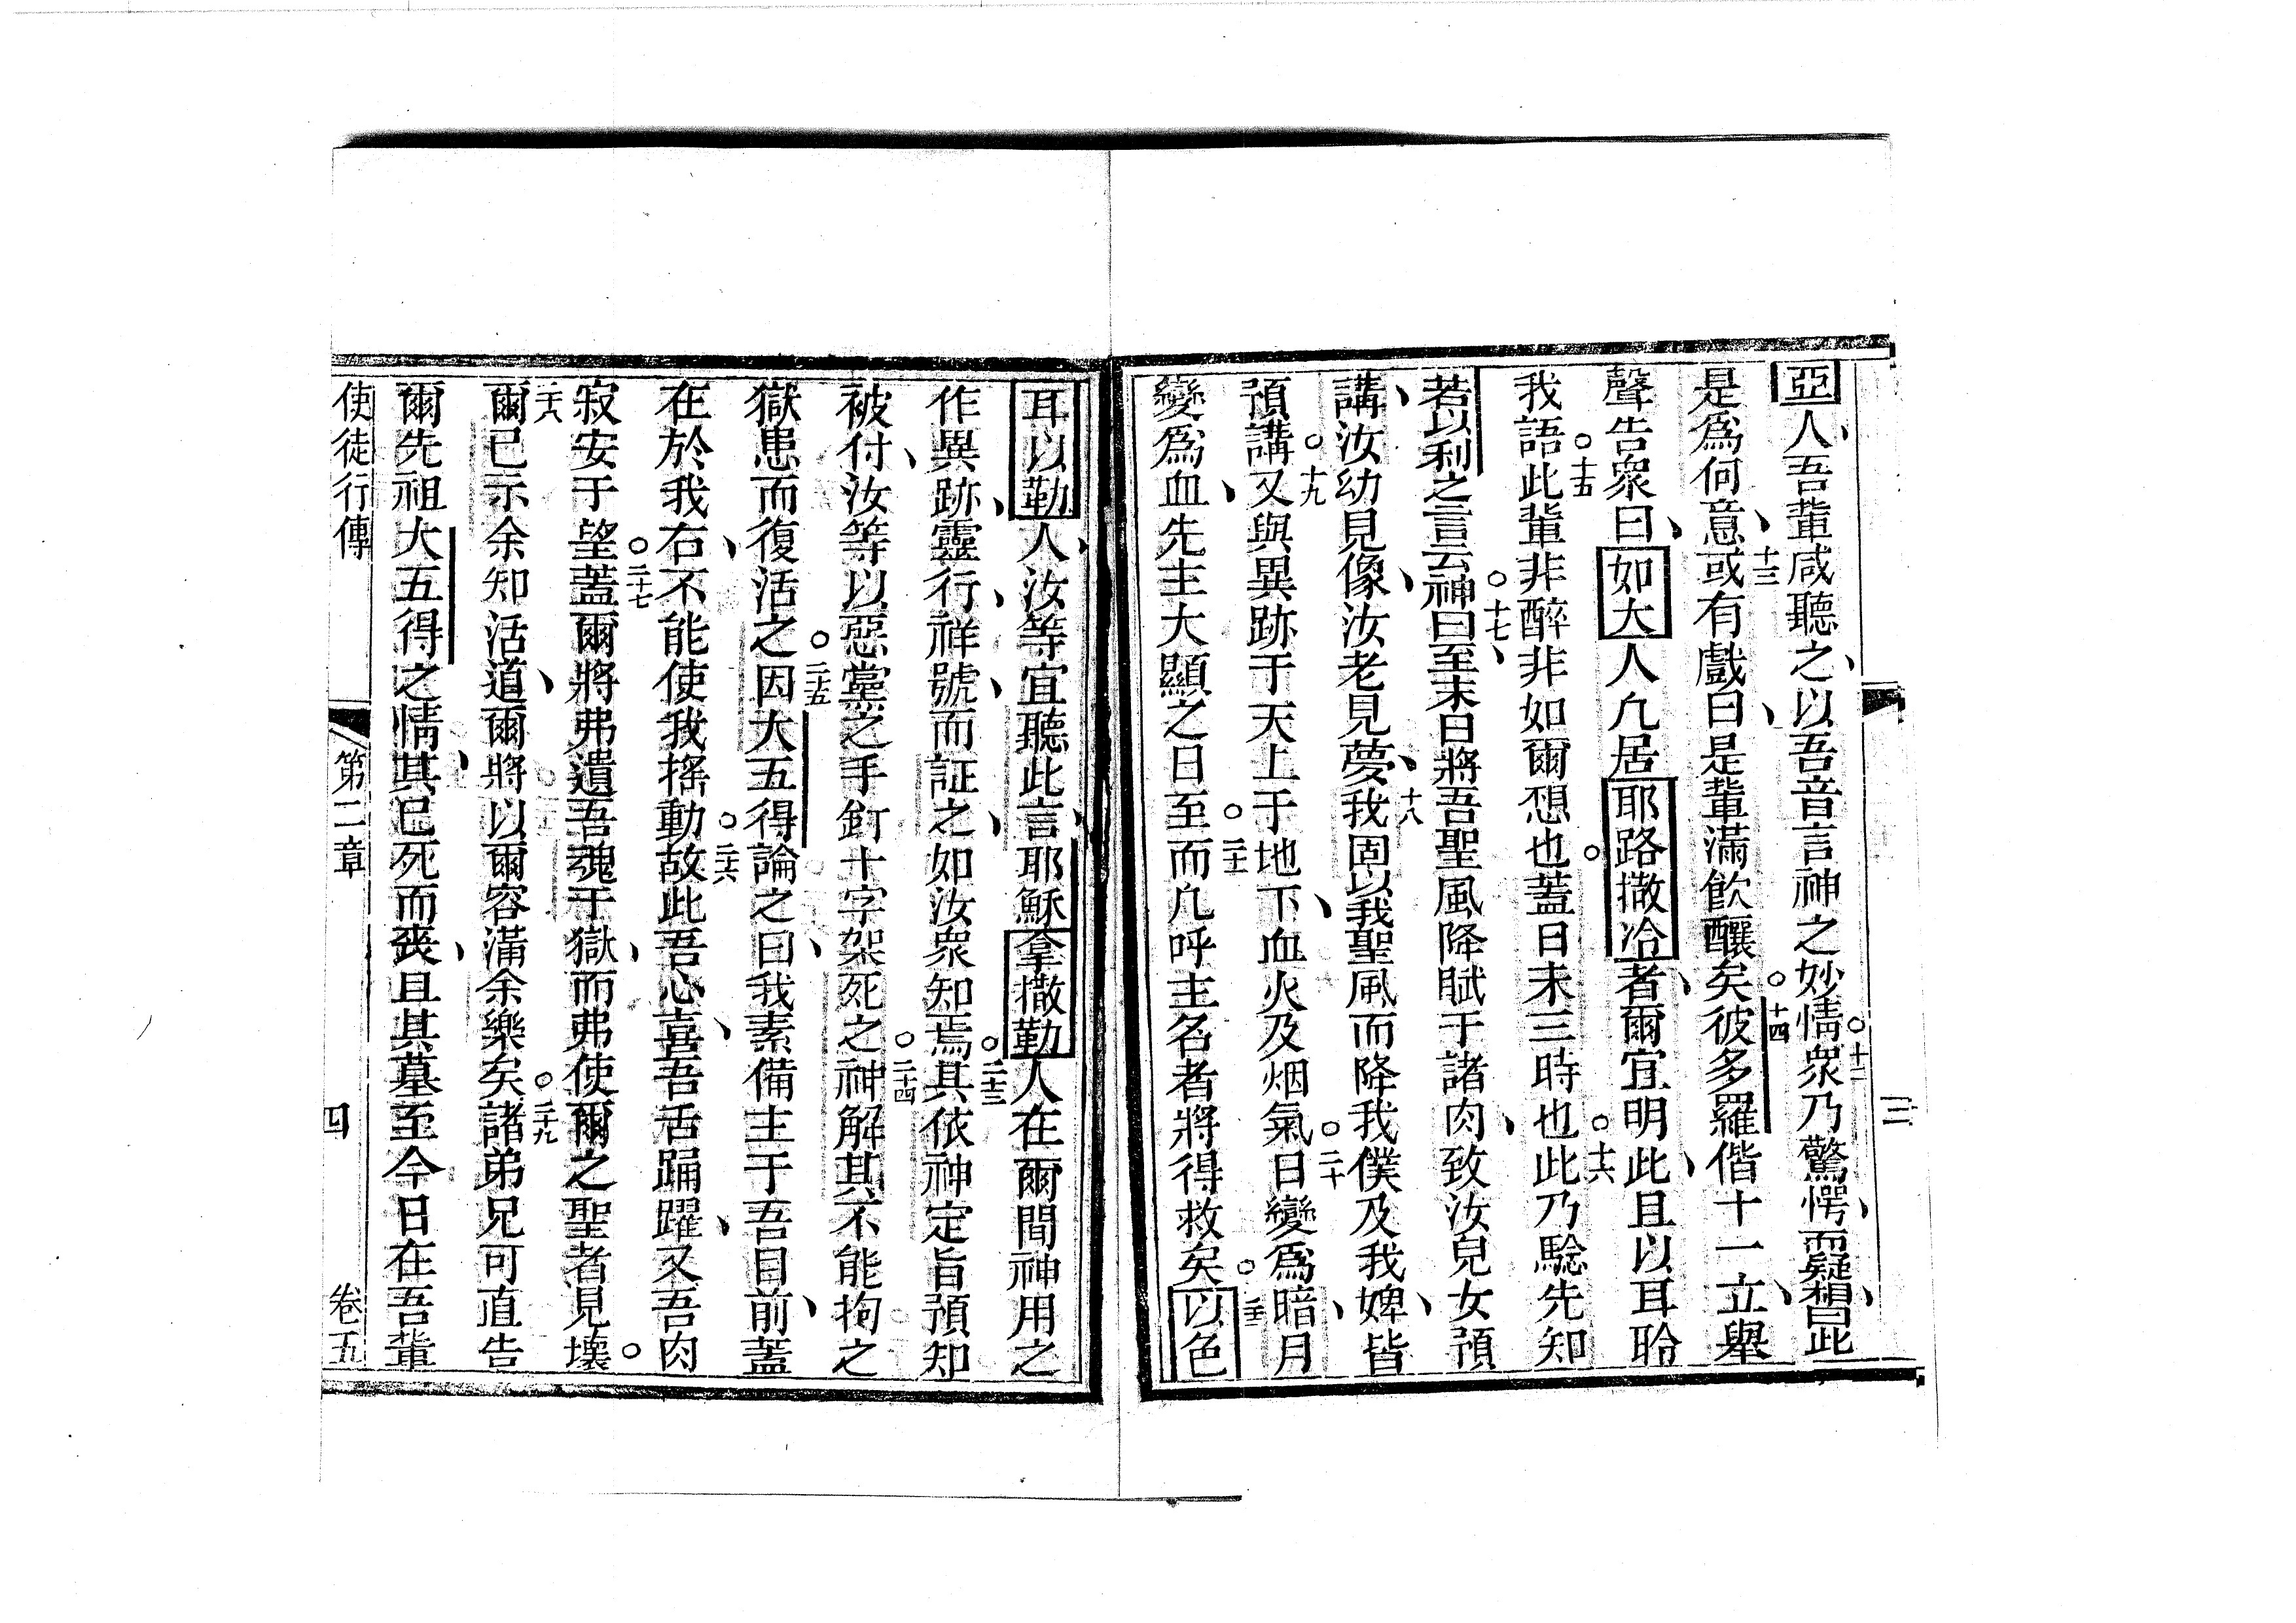 三
亞人吾輩咸聽之以吾音言神之妙情十二衆乃驚愕而疑想曰此
是爲何意十三或有戲曰是輩滿飮釀矣十四彼多羅偕十一立舉
聲告衆曰如大人凢居耶路撒冾者爾宜明此且以耳聆
我語十五此輩非醉非如爾想也蓋日未三時也十六此乃騐先知
若以利之言云十七神曰至末日將吾聖風降賦于諸肉致汝兒女預
講汝幼見像汝老見夢十八我固以我聖風而降我僕及我婢皆
預講十九又與異跡于天上于地下血火及烟氣二十日變爲暗月
變爲血先主大顯之日至二十一而凢呼主名者將得救矣二十二以色
耳以勒人汝等宜聽此言耶穌拿撒勒人在爾間神用之
作異跡靈行祥號而証之如汝衆知焉二十三其依神定旨預知
被付汝等以惡黨之手釘十字架死之二十四神解其不能拘之
獄患而復活之二十五因大五得論之曰我素備主于吾目前蓋
在於我右不能使我搖動二十六故此吾心喜吾舌踊躍又吾肉
寂安于望二十七蓋爾將弗遺吾魂于獄而弗使爾之聖者見壞
二十八爾已示余知活道爾將以爾容滿余樂矣二十九諸弟兄可直告
爾先祖大五得之情其已死而丧且其墓至今日在吾輩
使徒行傳 第二章 四 卷五